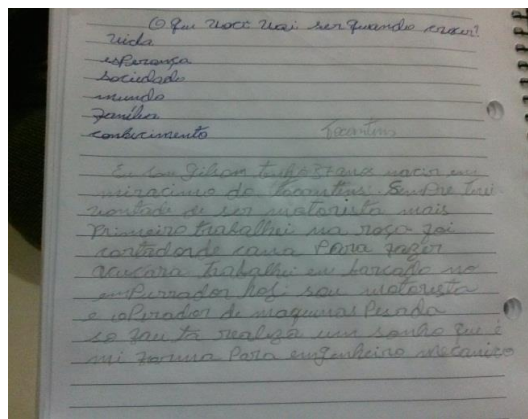 O que você vai ser quando crecer?
vida
esperança
sociedade
mundo
família
conhecimento
Tocantins
Eu sou Gilson tenho 37 anos naci em
miracima do Tocantins. Sempre tive
vontade de ser motorista mais
Primeiro trabalhei na roça foi
cortador de cana Para fazer
açucara trabalhei em barcaça no
emPurrador hoj sou motorista
e oPerador de maquinas Pesada
so fauta realizá um sonho que é
mi forma Para engenheiro mecanico